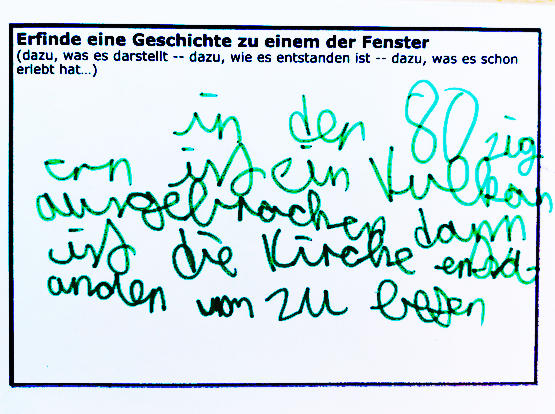 Erfinde eine Geschichte zu einem der Fenster
(dazu, was es darstellt -- dazu, wie es entstanden ist -- dazu, was es schon
erlebt hat...)
in den 80zig
ern ist ein Vulkan
ausgebrochen dann
ist die Kirche entsd-
anden um zu beten